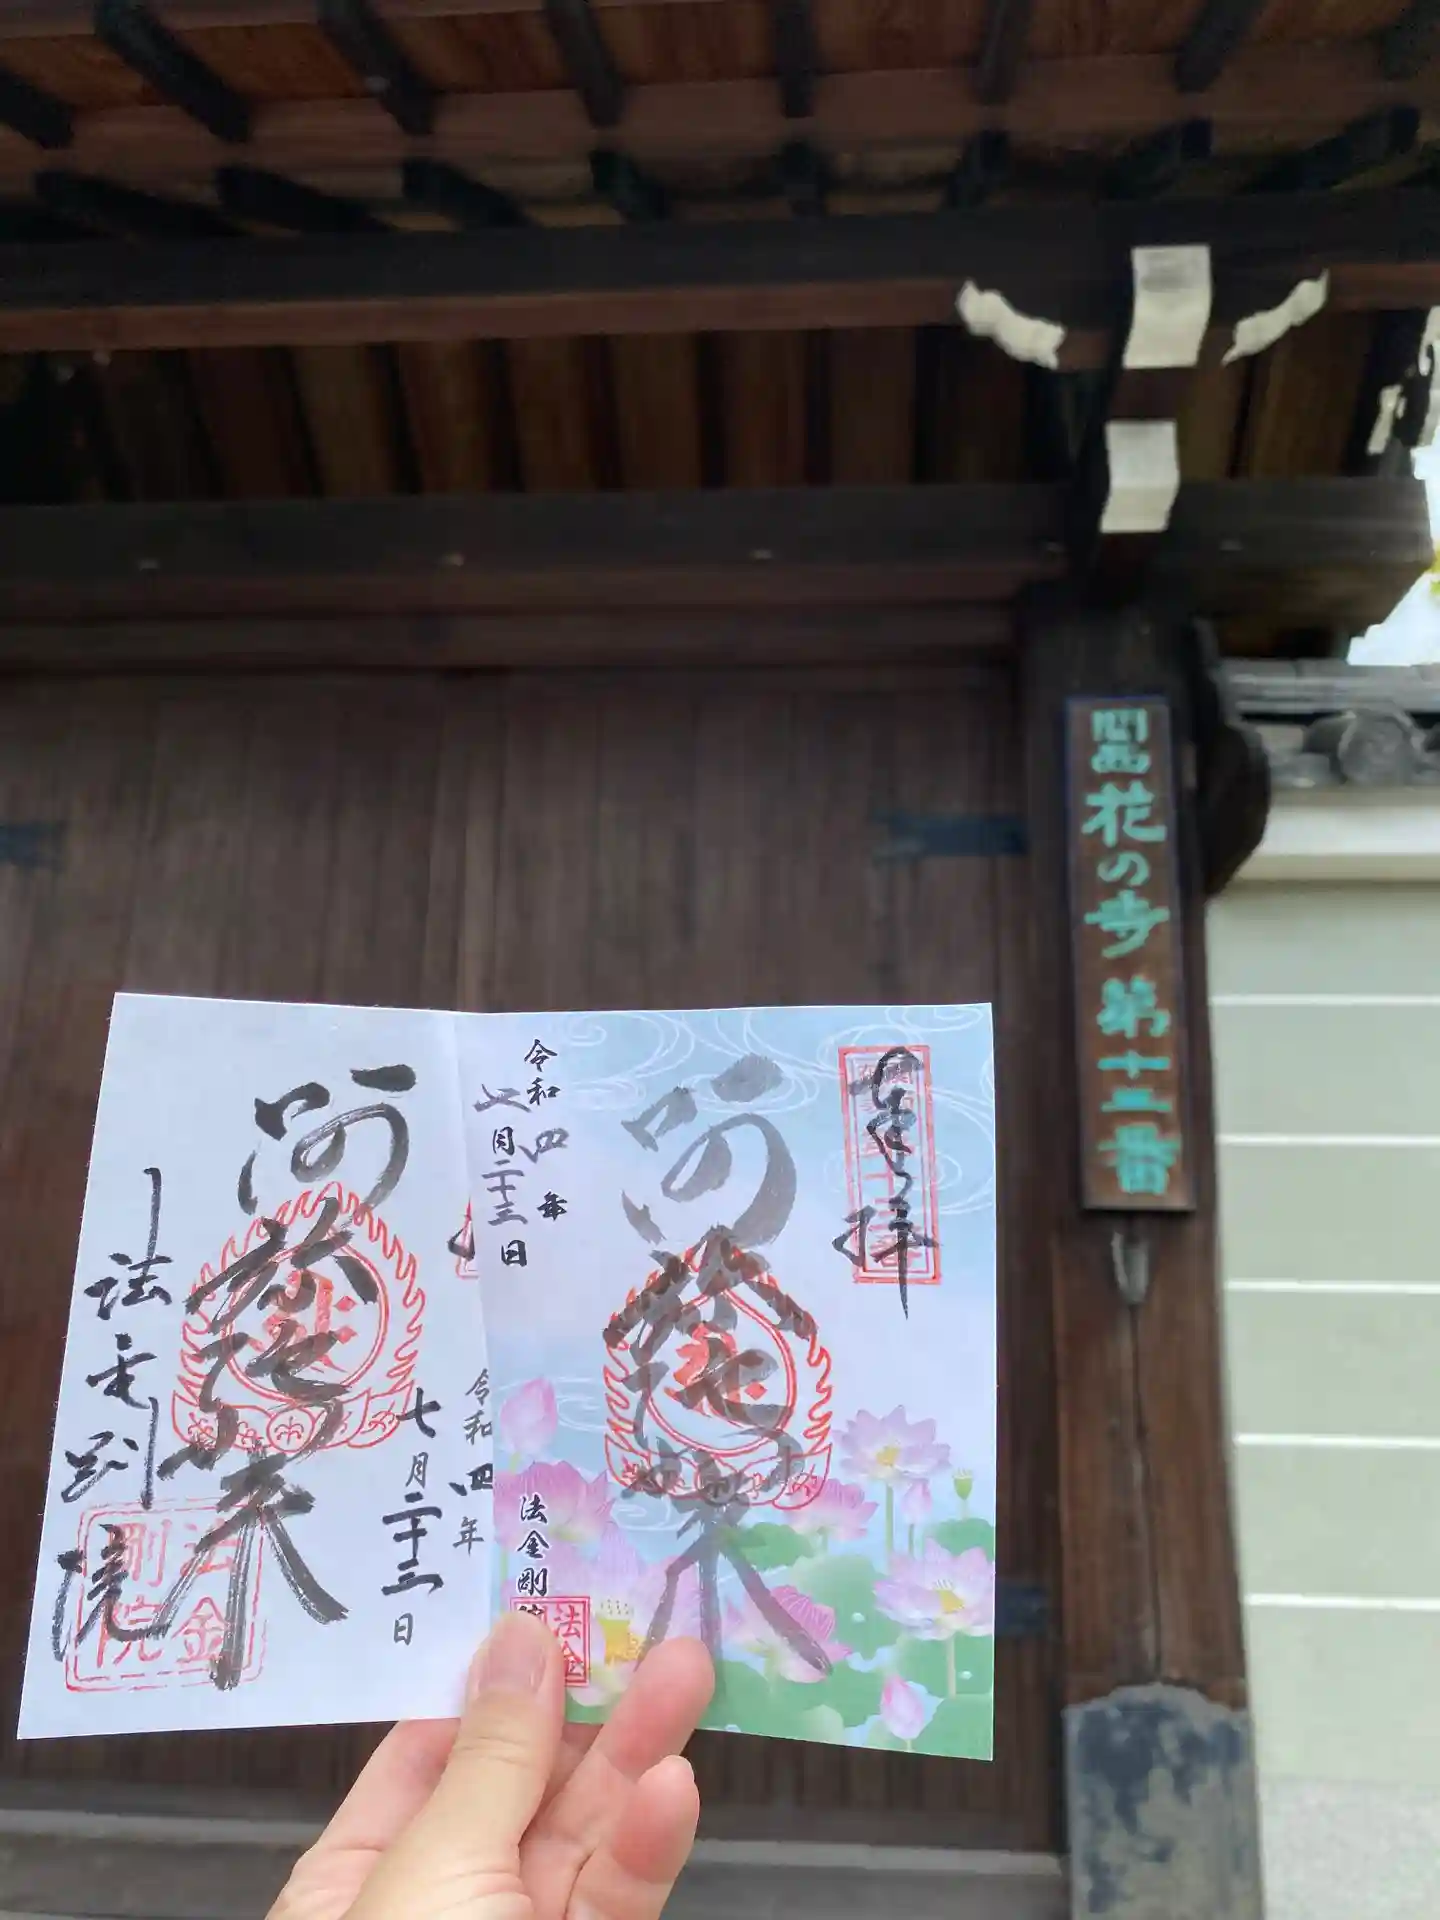 関西花の寺第十三番
奉拝
阿弥陀如来
令和四年
七月二十三日
法金剛院
法金
阿弥陀如来
令和四年
七月二十三日
法金剛院
法金
剛院